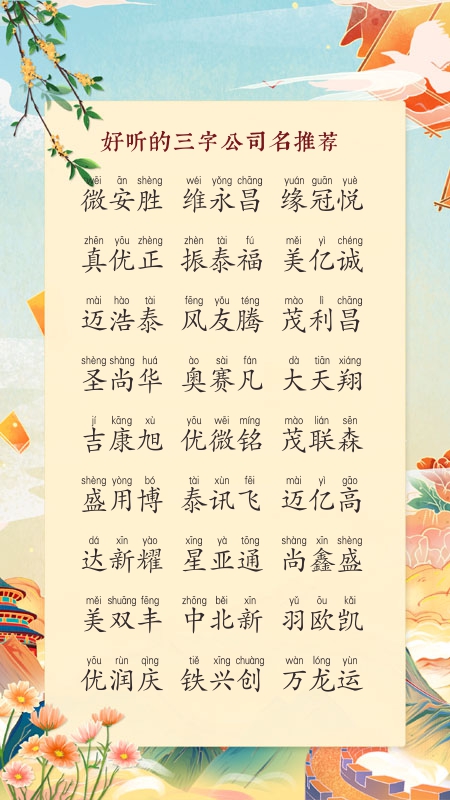 好听的三字公司名推荐
wēi ān shèng wéi yǒng chāng yuán guān yuè
微安胜 维永昌 缘冠悦
zhēn yōu zhèng zhèn tài fú měi yì chéng
真优正 振泰福 美亿诚
mài hào tài fēng yǒu téng mào lì chāng
迈浩泰 风友腾 茂利昌
shèng shàng huá ào sài fán dà tiān xiáng
圣尚华 奥赛凡 大天翔
jí kāng xù yōu wēi míng mào lián sēn
吉康旭 优微铭 茂联森
shèng yòng bó tài xùn fēi mài yì gāo
盛用博 泰讯飞 迈亿高
dá xīn yào xīng yà tōng shàng xīn shèng
达新耀 星亚通 尚鑫盛
měi shuāng fēng zhōng běi xīn yǔ ōu kǎi
美双丰 中北新 羽欧凯
yōu rùn qìng tiě xīng chuàng wàn lóng yùn
优润庆 铁兴创 万龙运